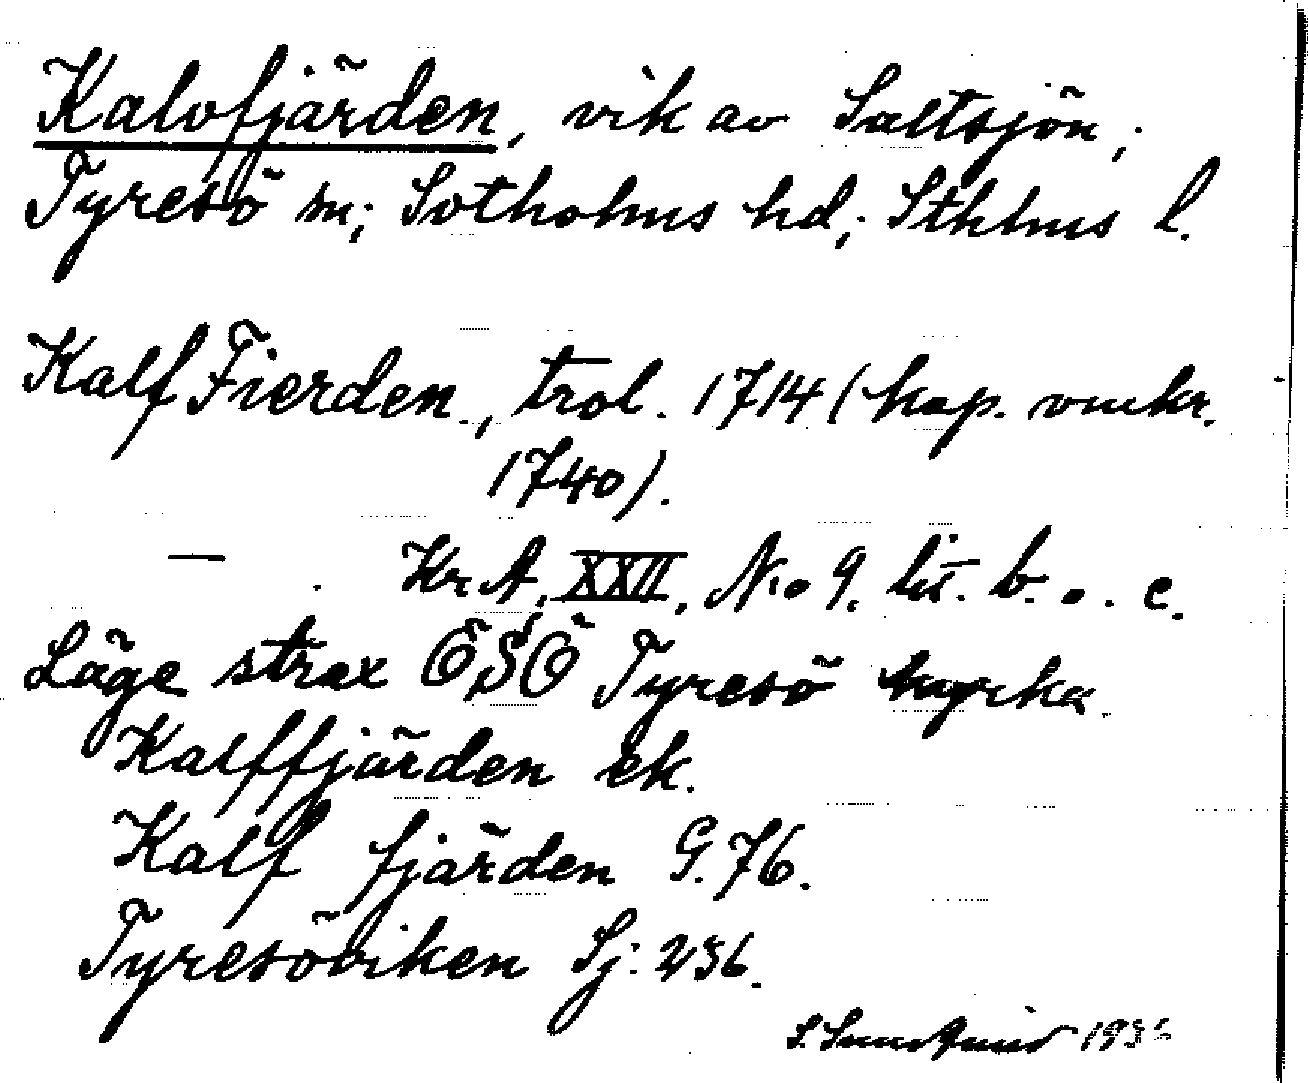 Kalvfjärden, vik av Saltsjön,
Tyresö sn; Sotholms hd; Sthlms l.
Kalf Fierden, trol. 1714 (kop. omkr.
1740).
— Kr A, XXII, No 9. lit. b. o. c.
Läge strax ÖSÖ Tyresö kyrka
Kalffjärden ek.
Kalf fjärden G. 76.
Tyresöviken Sj: 236.
S. 193